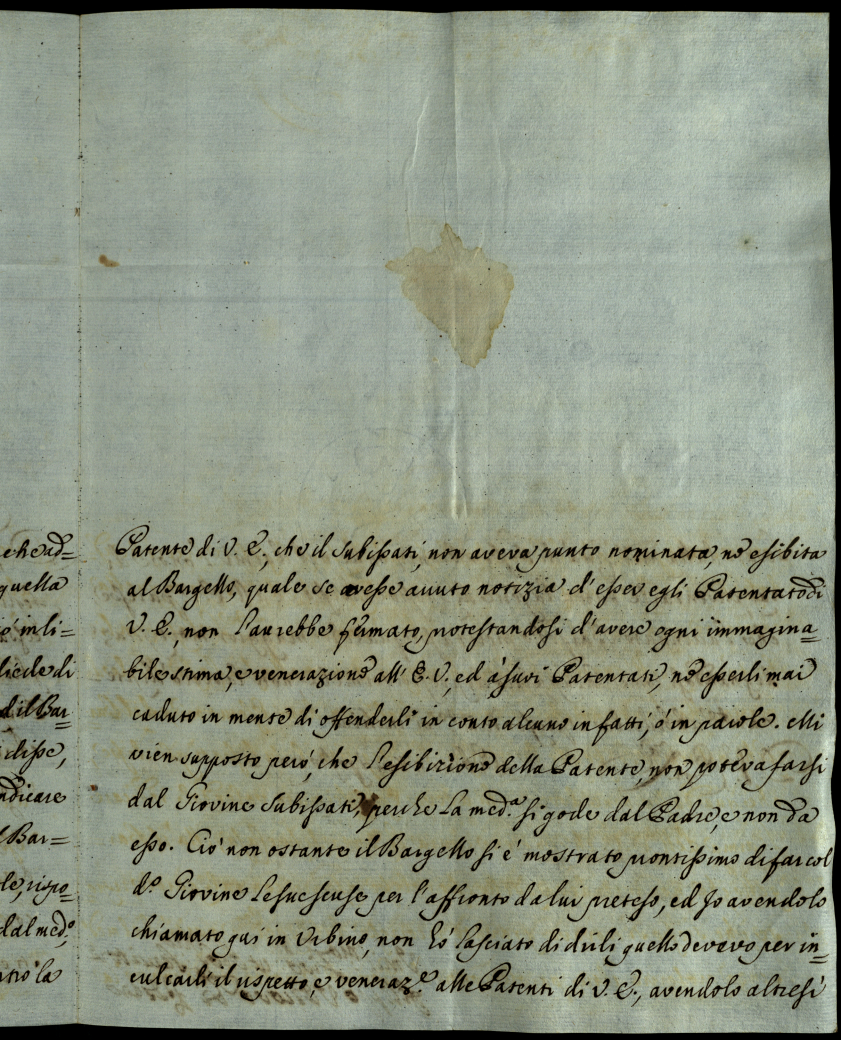 ehe ad=
quella
ó in li=
licede di
d il Bar=
disse,
ndicare
l Bar=
le, rispo=
dal med.º
ntro la
Patente di V. E., che il Subissati, non aveva punto nominata, nè esibita
al Bargello, quale se avesse avuto notizia d'esser egli Patentato di
V. E., non l'averebbe fermato, protestandosi d'avere ogni immagina=
bile stima, e venerazione all' E. V., ed à suoi Patentati, nè esserli mai
caduto in mente di offenderli in conto alcuno in fatti, ó in parole. Mi
vien supposto peró, che l'esibizione della Patente, non poteva farsi
dal Giovine Subissati, perche la med.ª si gode dal Padre, e non da
esso. Ció non ostante il Bargello si é mostrato prontissimo di far col
d.º Giovine le sue scuse per l'affronto da lui preteso, ed Jo avendolo
chiamato qui in Urbino, non hó lasciato di dirli quello devevo per in=
culcarli il rispetto, e veneraz.e alle Patenti di V. E., avendolo altresi